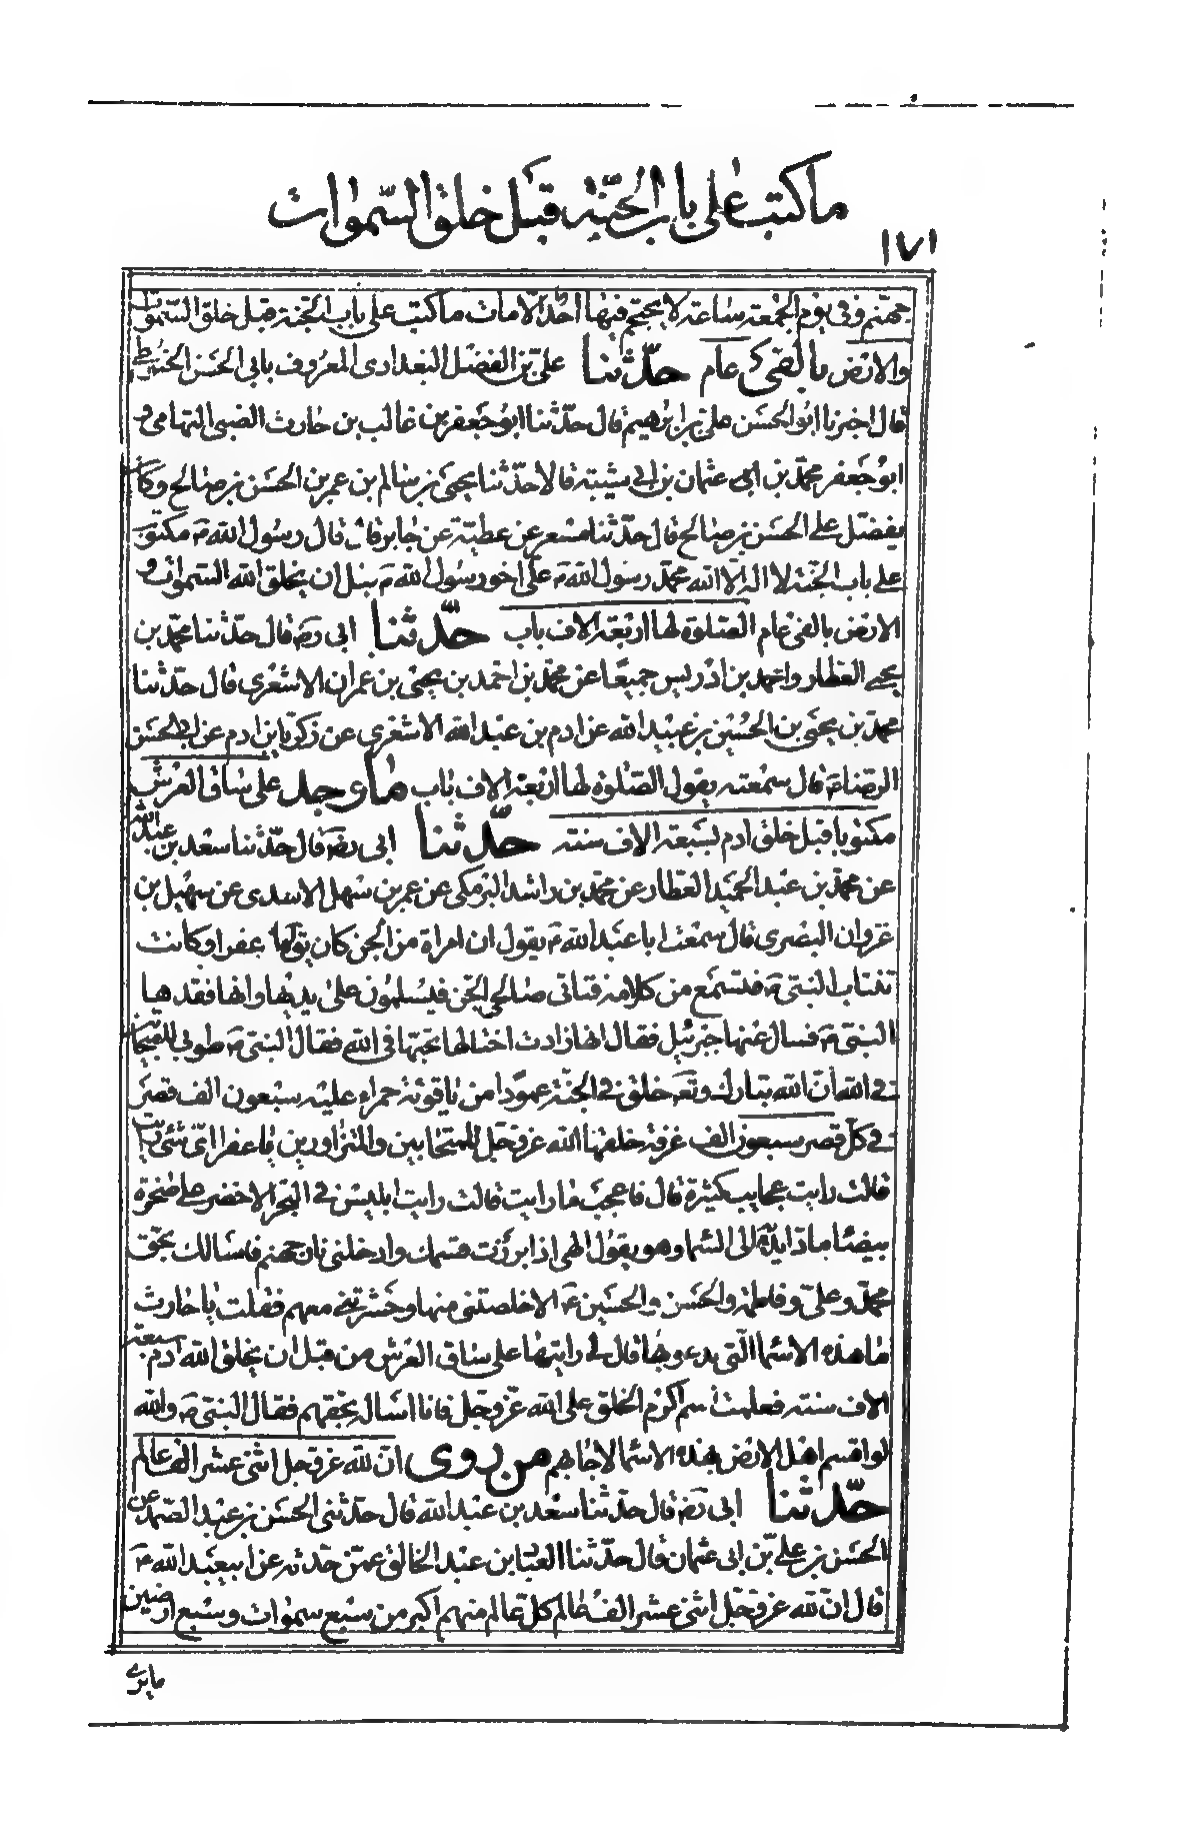 ما كتب على باب الجنة قبل خلق السموات
١٧١
جهنم وفى يوم الجمعة ساعة لا يحتجم فيها احد الا مات ما كتب على باب الجنة قبل خلق السموات
والارض بالفى عام حدثنا على بن الفضل البغدادى المعروف بابى الحسن الحنوطى
قال اخبرنا ابو الحسن على بن ابرهيم قال حدثنا ابو جعفر بن غالب بن حارث الضبى التهامى و
ابو جعفر محمد بن ابى عثمان بن ابى شيبة قالا حدثنا يحيى بن سالم بن عمر بن الحسن بن صالح وكان
يفضل على الحسن بن صالح قال حدثنا مسعر عن عطية عن جابر قال قال رسول الله ص مكتوب
على باب الجنة لا اله الا الله محمد رسول الله ص على اخو رسول الله ص قبل ان يخلق الله السموات و
الارض بالفى عام الصلوة لها اربعة الاف باب حدثنا ابى رض قال حدثنا محمد بن
يحيى العطار واحمد بن ادريس جميعا عن محمد بن احمد بن يحيى بن عمران الاشعرى قال حدثنا
محمد بن يحيى بن الحسين بن عبيد الله عن ادم بن عبد الله الاشعرى عن زكريا بن ادم عن ابى الحسن
الرضا ع قال سمعته يقول الصلوة لها اربعة الاف باب ما وجد على ساق العرش
مكتوبا قبل خلق ادم بسبعة الاف سنة حدثنا ابى رض قال حدثنا سعد بن عبد الله
عن محمد بن عبد الحميد العطار عن محمد بن راشد البرمكى عن عمر بن سهل الاسدى عن سهيل بن
غزوان البصرى قال سمعت ابا عبد الله ع يقول ان امراة من الجن كان يقال لها عفرا وكانت
تنتاب النبى ص فتستمع من كلامه فتاتى صالحى الجن فيسلمون على يديها وانها فقدها
النبى ص فسال عنها جبرئيل فقال انها زارت اختا لها تحبها فى الله فقال النبى ص طوبى للمتحابين
فى الله ان الله تبارك وتعالى خلق فى الجنة عمودا من ياقوتة حمراء عليه سبعون الف قصر
فى كل قصر سبعون الف غرفة خلقها الله عز وجل للمتحابين والمتزاورين يا عفرا اى شئ رايت
قالت رايت عجايب كثيرة قال فاعجب ما رايت قالت رايت ابليس فى البحر الاخضر على صخرة
بيضا مادا يديه الى السما وهو يقول الهى اذا ابررت قسمك وادخلتنى نار جهنم فاسالك بحق
محمد وعلى وفاطمة والحسن والحسين ع الا خلصتنى منها وحشرتنى معهم فقلت يا حارث
ما هذه الاسما التى تدعو بها قال لى رايتها على ساق العرش من قبل ان يخلق الله ادم بسبعة
الاف سنة فعلمت انهم اكرم الخلق على الله عز وجل فانا اساله بحقهم فقال النبى ص والله
لو اقسم اهل الارض بهذه الاسما لاجابهم من روى ان لله عز وجل اثنى عشر الف عالم
حدثنا ابى رض قال حدثنا سعد بن عبد الله قال حدثنى الحسن بن عبد الصمد عن
الحسن بن على بن ابى عثمان قال حدثنا العباد بن عبد الخالق عمن حدثه عن ابيعبد الله ع
قال ان لله عز وجل اثنى عشر الف عالم كل عالم منهم اكبر من سبع سموات وسبع ارضين
ما يرى